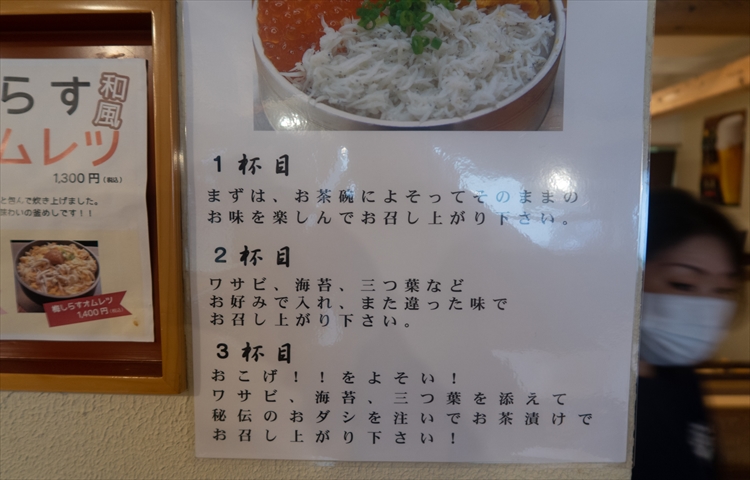 らす
和風
ムレツ
1,300円(税込)
と包んで炊き上げました。
味わいの釜めしです!!
釜しらすオムレツ
1,400円(税込)
1杯目
まずは、お茶碗によそってそのままの
お味を楽しんでお召し上がり下さい。
2杯目
ワサビ、海苔、三つ葉など
お好みで入れ、また違った味で
お召し上がり下さい。
3杯目
おこげ!!をよそい!
ワサビ、海苔、三つ葉を添えて
秘伝のおダシを注いでお茶漬けで
お召し上がり下さい!